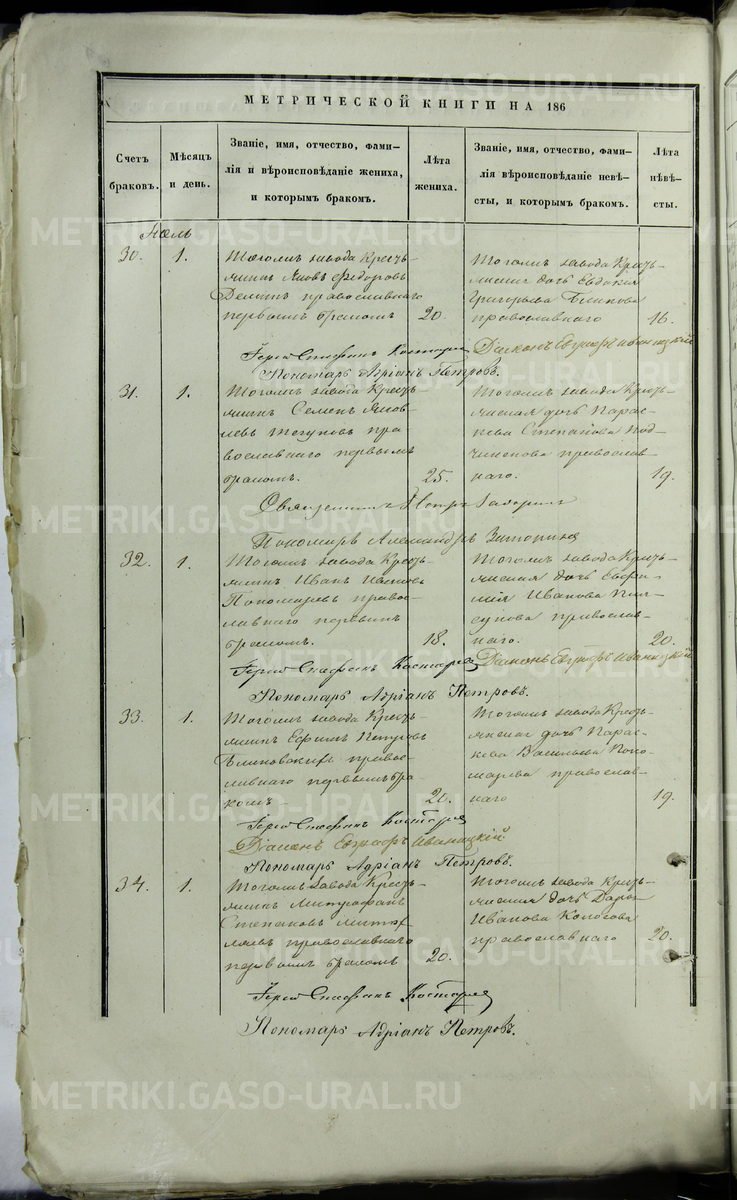 МЕТРИЧЕСКОЙ КНИГИ НА 186
Счетъ браковъ.
Мѣсяцъ и день.
Званіе, имя, отчество, фами-
лія и вѣроисповѣданіе жениха,
и которымъ бракомъ.
Лѣта жениха.
Званіе, имя, отчество, фами-
лія вѣроисповѣданіе невѣ-
сты, и которымъ бракомъ.
Лѣта невѣ-
сты.
30. 1.
Тогожъ завода Кресть-
янинъ Яковъ Федоровъ
православнаго
первымъ бракомъ 20.
Тогожъ завода Кресть-
янская дочь Евдокия
Григорьева
православнаго 16.
Іерей Стефанъ Діаконъ Евграфъ Иваницкій
Пономарь Адріанъ Петровъ.
31. 1.
Тогожъ завода Кресть-
янинъ Семенъ Яков-
левъ пра
вославнаго первымъ
бракомъ. 25.
Тогожъ завода Кресть-
янская дочь Парас-
кева Степанова
православ-
наго. 19.
Священникъ Петръ
Пономарь Александръ
32. 1.
Тогожъ завода Кресть-
янинъ Иванъ Ивановъ
Пономаревъ правос-
лавнаго первымъ
бракомъ. 18.
Тогожъ завода Кресть-
янская дочь Евфи-
мія Иванова
православ-
наго. 20.
Іерей Стефанъ Діаконъ Евграфъ Иваницкій
Пономарь Адріанъ Петровъ.
33. 1.
Тогожъ завода Кресть-
янинъ Ефимъ Петровъ
правос-
лавнаго первымъ бра
комъ 20.
Тогожъ завода Кресть-
янская дочь Парас-
кева Васильева Поно-
марева православ-
наго 19.
Іерей Стефанъ
Діаконъ Евграфъ Иваницкій
Пономарь Адріанъ Петровъ.
34. 1.
Тогожъ завода Кресть-
янинъ Митрофанъ
Степановъ
православнаго
первымъ бракомъ 20.
Тогожъ завода Кресть-
янская дочь Дарья
Иванова Колосова
православнаго 20.
Іерей Стефанъ
Пономарь Адріанъ Петровъ.
METRIKI.GASO-URAL.RU